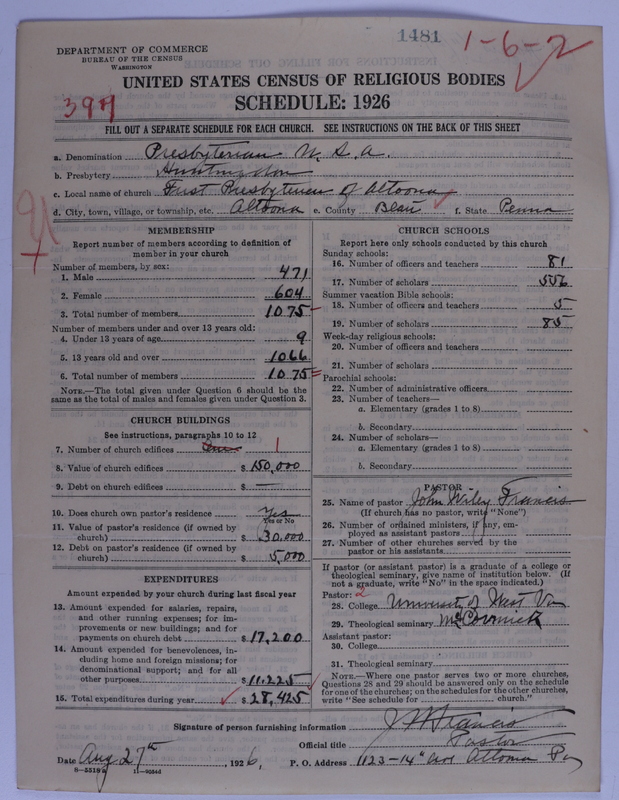 1481
1-6-2
DEPARTMENT OF COMMERCE
BUREAU OF THE CENSUS
WASHINGTON
UNITED STATES CENSUS OF RELIGIOUS BODIES
SCHEDULE: 1926
FILL OUT A SEPARATE SCHEDULE FOR EACH CHURCH. SEE INSTRUCTIONS ON THE BACK OF THIS SHEET
a. Denomination Presbyterian U. S. A.
b. Presbytery Huntingdon
c. Local name of church First Presbyterian of Altoona
d. City, town, village, or township, etc. Altoona e. County Blair f. State Penna
MEMBERSHIP
Report number of members according to definition of
member in your church
Number of members, by sex:
1. Male 471
2. Female 604
3. Total number of members 1075
Number of members under and over 13 years old:
4. Under 13 years of age 9
5. 13 years old and over 1066
6. Total number of members 1075
NOTE.—The total given under Question 6 should be the
same as the total of males and females given under Question 3.
CHURCH BUILDINGS
See instructions, paragraphs 10 to 12
7. Number of church edifices 1
8. Value of church edifices $ 150,000
9. Debt on church edifices $ —
10. Does church own pastor's residence Yes
Yes or No
11. Value of pastor's residence (if owned by
church) $ 30,000
12. Debt on pastor's residence (if owned by
church) $ 5,000
EXPENDITURES
Amount expended by your church during last fiscal year
13. Amount expended for salaries, repairs,
and other running expenses; for im-
provements or new buildings; and for
payments on church debt $ 17,200
14. Amount expended for benevolences, in-
cluding home and foreign missions; for
denominational support; and for all
other purposes $ 11,225
15. Total expenditures during year $ 28,425
CHURCH SCHOOLS
Report here only schools conducted by this church
Sunday schools:
16. Number of officers and teachers 81
17. Number of scholars 556
Summer vacation Bible schools:
18. Number of officers and teachers 5
19. Number of scholars 85
Week-day religious schools:
20. Number of officers and teachers
21. Number of scholars
Parochial schools:
22. Number of administrative officers
23. Number of teachers—
a. Elementary (grades 1 to 8)
b. Secondary
24. Number of scholars—
a. Elementary (grades 1 to 8)
b. Secondary
PASTOR
25. Name of pastor John Wiley Francis
(If church has no pastor, write "None")
26. Number of ordained ministers, if any, em-
ployed as assistant pastors
27. Number of other churches served by the
pastor or his assistants
If pastor (or assistant pastor) is a graduate of a college or
theological seminary, give name of institution below. (If
not a graduate, write "No" in the space indicated.)
Pastor: 2
28. College University of West Va
29. Theological seminary McCormick
Assistant pastor:
30. College
31. Theological seminary
NOTE.—Where one pastor serves two or more churches,
Questions 28 and 29 should be answered only on the schedule
for one of the churches; on the schedules for the other churches,
write "See schedule for church."
Signature of person furnishing information J W Francis
Official title Pastor
Date Aug 27th, 1926. P. O. Address 1123-14" Ave Altoona Pa
8-5518 11-9054d